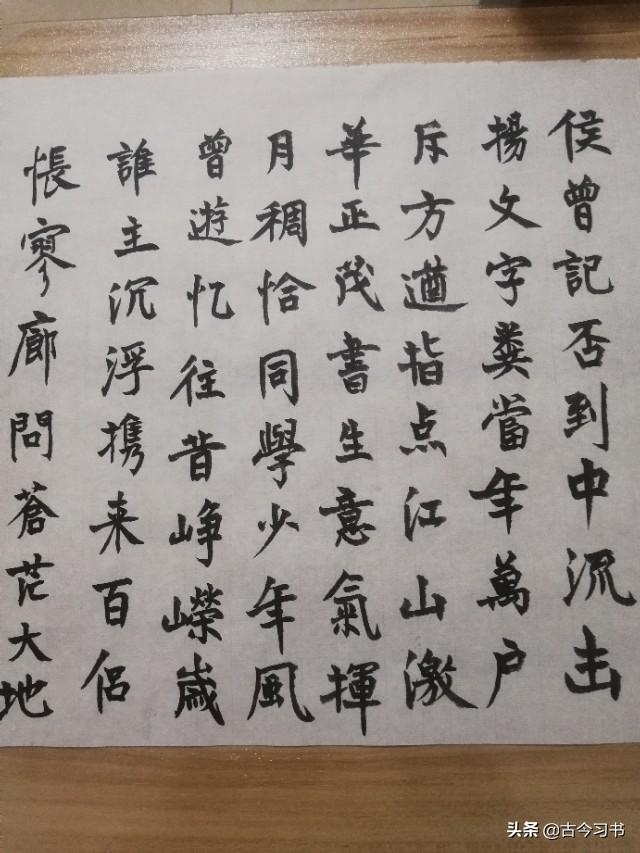 悵寥廊問蒼茫大地
誰主沉浮携来百侣
曾遊忆往昔峥嶸歲
月稠恰同學少年風
華正茂書生意氣揮
斥方遒指点江山激
揚文字糞當年萬户
侯曾記否到中流击
头条 @古今习书